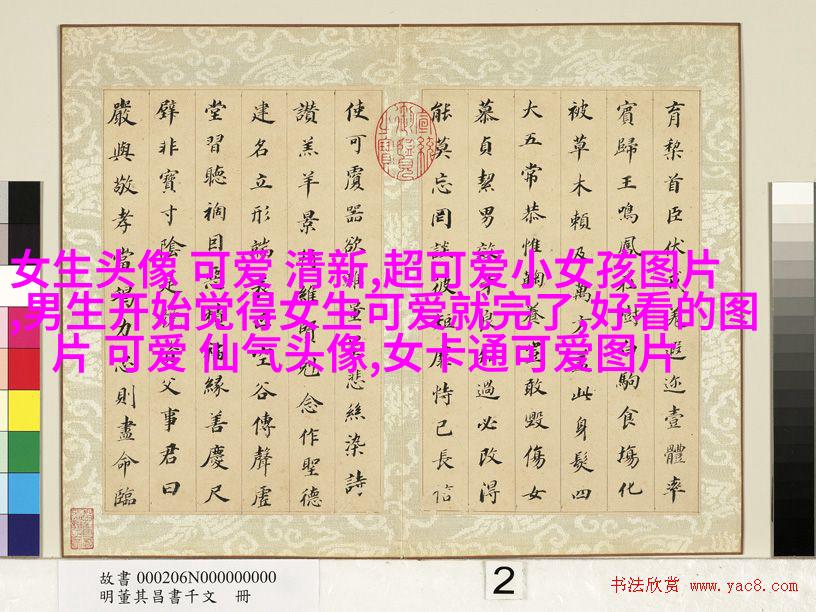 女生头像 可爱 清新,超可爱小女孩图片
,男生开始觉得女生可爱就完了,好看的图
片 可爱 仙气头像,女卡通可爱图片
育黎首臣伏遐迩壹體率
賓歸王鳴鳳駒食場化
被草木賴及萬方此身髮四
大五常恭惟養敢毀傷女
慕貞絜男過必改得
能莫忘罔彼恃己長信
使可覆器欲量悲絲染詩
讚羔羊景維念作聖德
建名立形端谷傳聲虛
堂習聽禍因緣善慶尺
璧非寶寸陰父事君曰
嚴與敬孝當力則盡命臨
故書 000206N000000000
明董其昌書千文 冊
2
书法欣赏 www.yac8.com